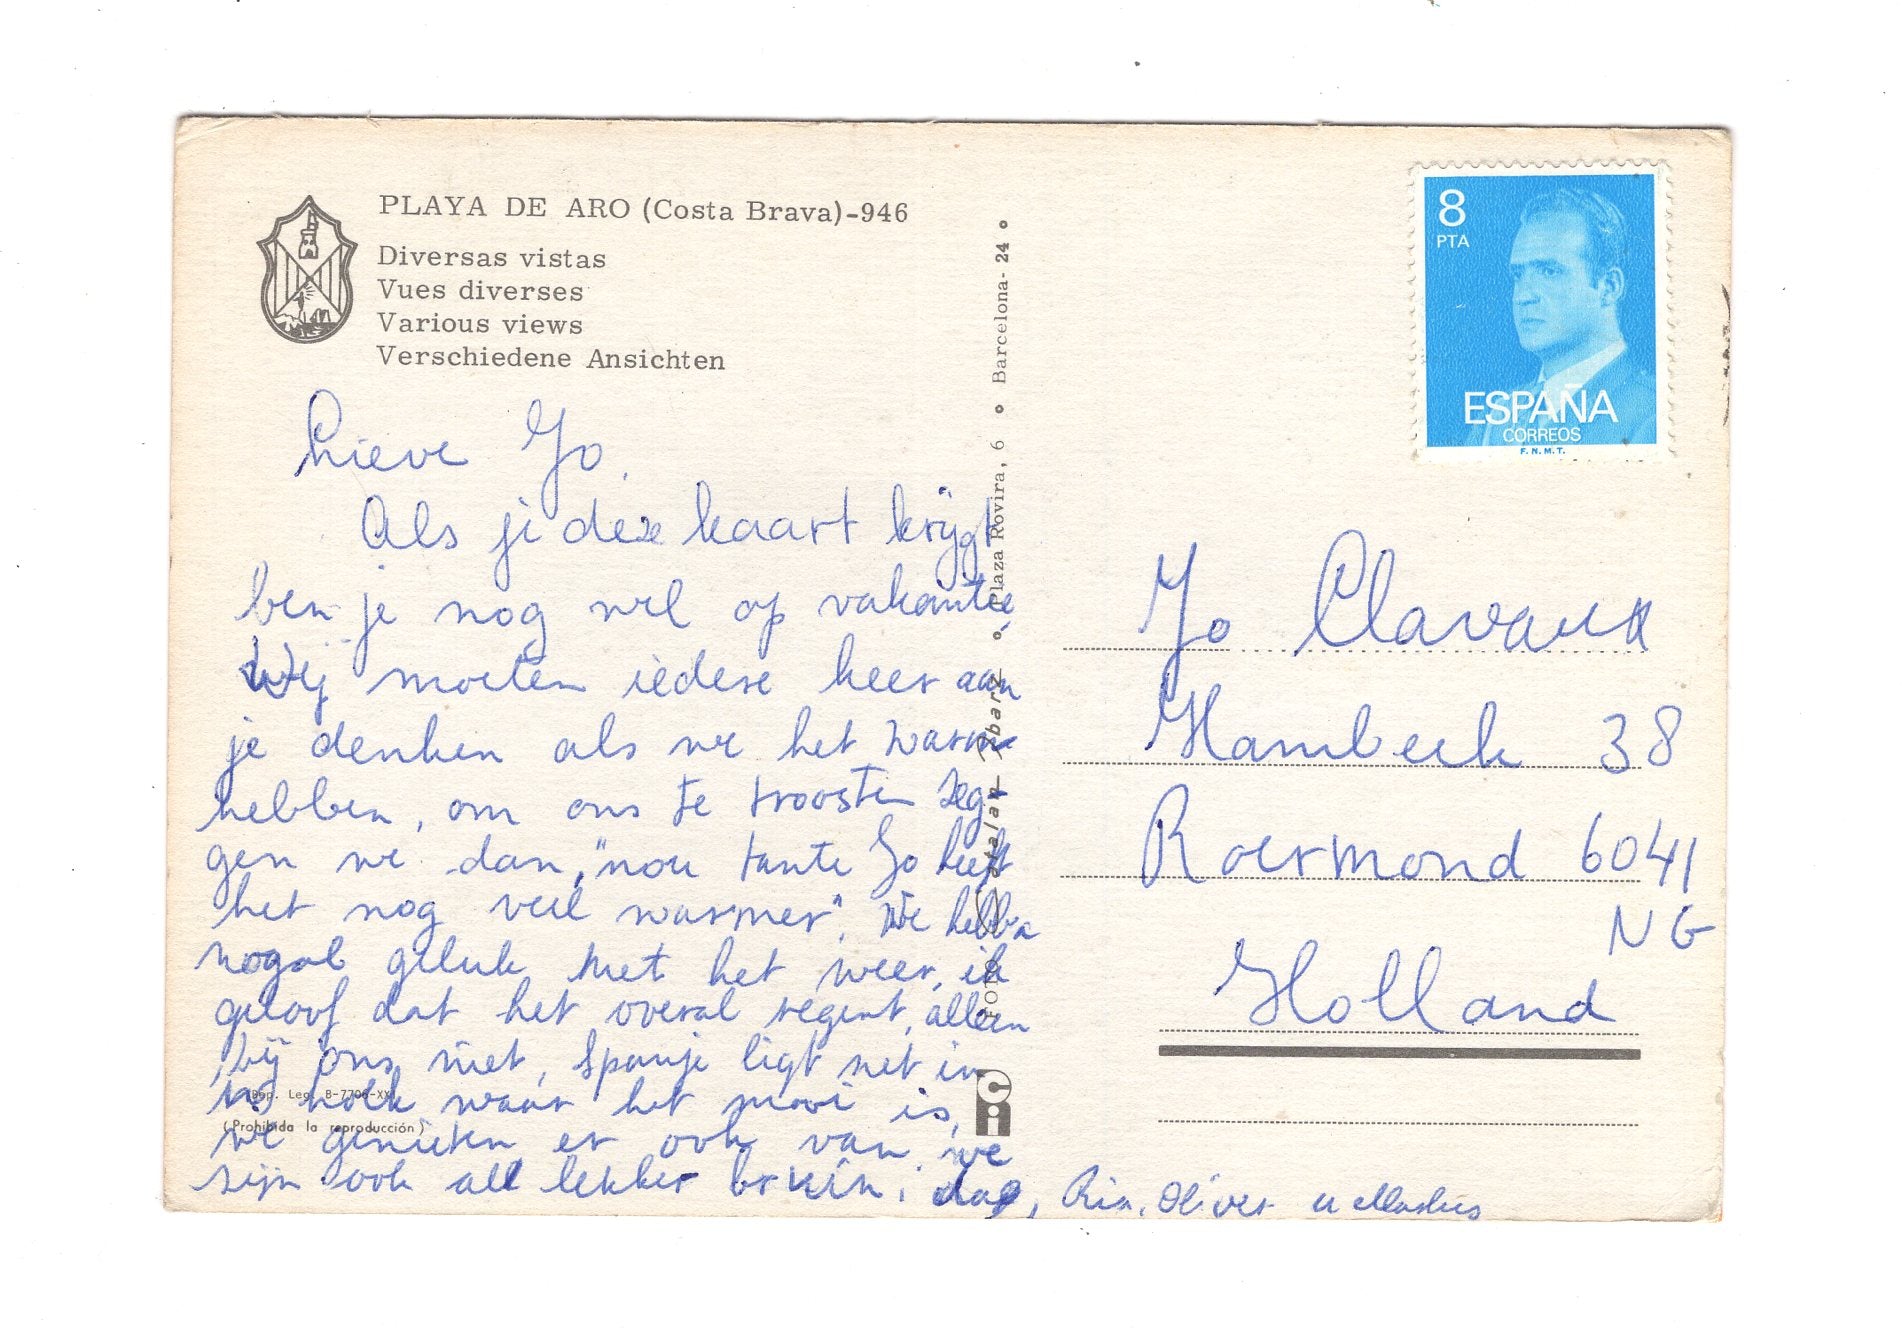 PLAYA DE ARO (Costa Brava)-946
Diversas vistas
Vues diverses
Various views
Verschiedene Ansichten
Lieve Jo,
Als je deze kaart krijgt
ben je nog wel op vakantie,
Wij moeten iedere keer aan
je denken als we het warm
hebben, om ons te troosten zeg-
gen we dan, "nou tante Jo heeft
het nog veel warmer". We hebben
nogal geluk met het weer, ik
geloof dat het overal regent, alleen
bij ons niet, Spanje ligt net in
hoek waar het mooi is,
we genieten er ook van, we
zijn ook all lekker bruin. dag, Ria, Oliver
(Dep. Leg. B-7706-XX)
(Prohibida la reproducción)
FOTO Catalan Ibarz Plaza Rovira, 6 Barcelona-24
Ci
8
PTA
ESPAÑA
CORREOS
F.N.M.T.
Jo Clavaux
Hambeek 38
Roermond 6041
NG
Holland